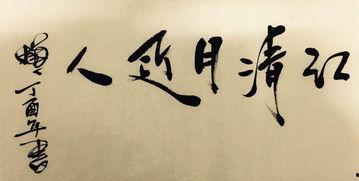 江清月近人
丁酉年書